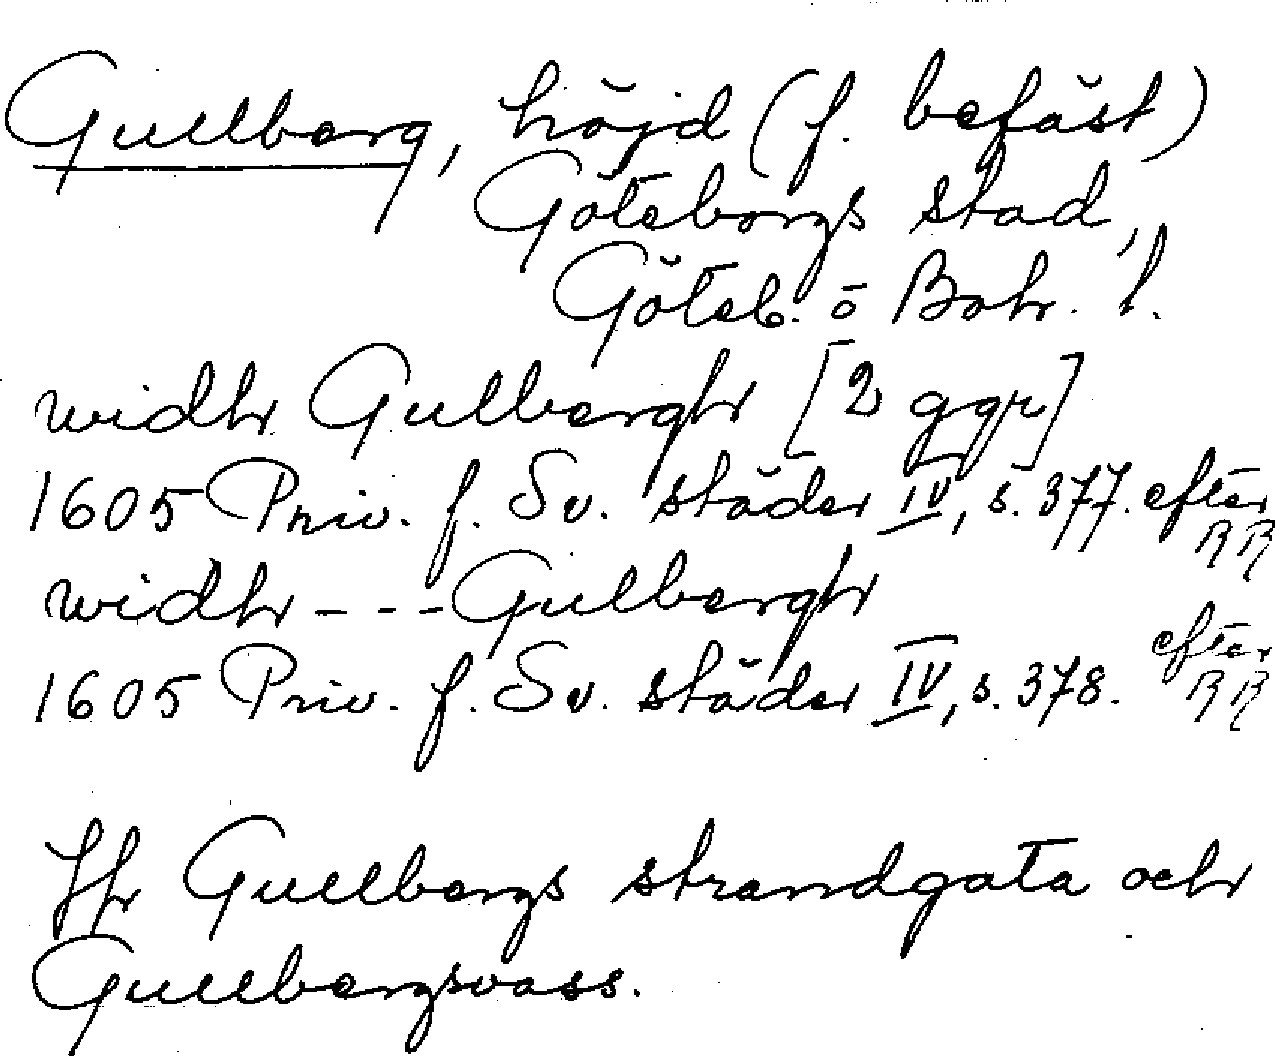 Gullberg, höjd (f. befäst)
Göteborgs stad,
Göteb. o Boh. l.
widh Gulbergh [2 ggr]
1605 Priv. f. Sv. städer IV, s. 377. efter RR
widh - - - Gulbergh
1605 Priv. f. Sv. städer IV, s. 378. efter RR
Jfr Gullbergs strandgata och
Gullbergsvass.